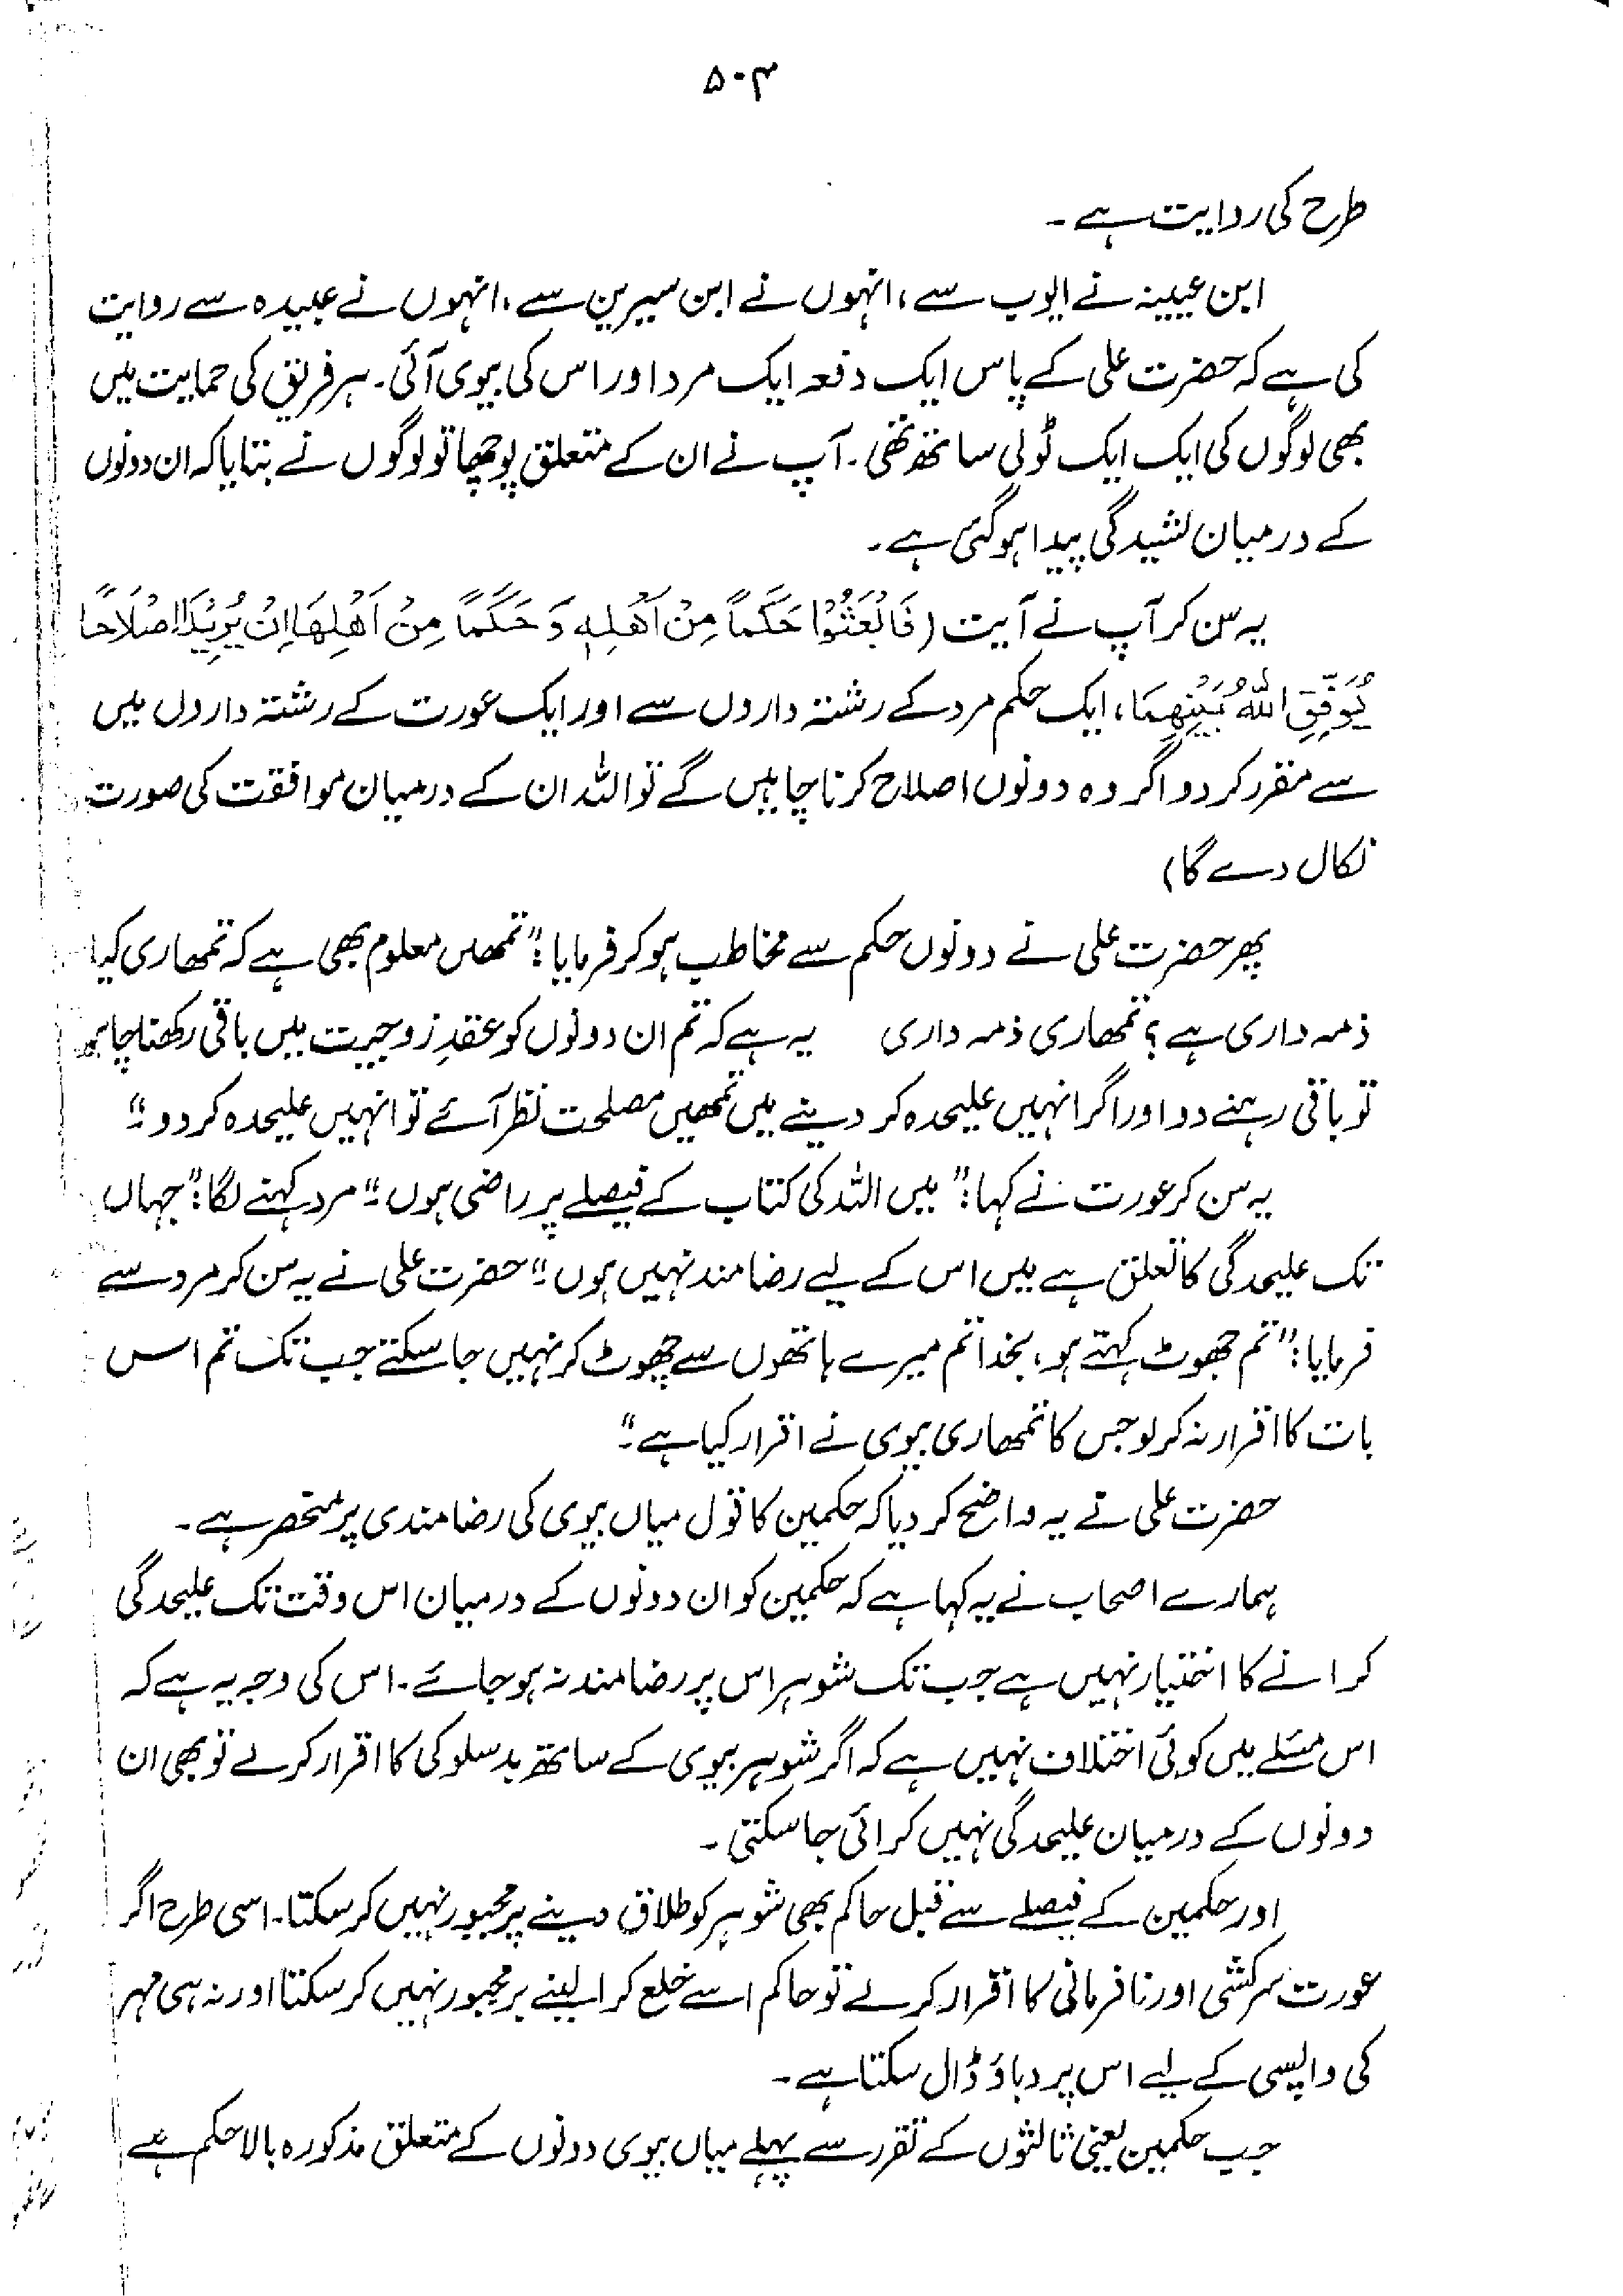 ۵۰۴
طرح کی روایت ہے۔
ابن عیینہ نے ایوب سے، انہوں نے ابن سیرین سے، انہوں نے عبیدہ سے روایت
کی ہے کہ حضرت علی کے پاس ایک دفعہ ایک مرد اور اس کی بیوی آئی۔ ہر فریق کی حمایت میں
بھی لوگوں کی ایک ایک ٹولی ساتھ تھی۔ آپ نے ان کے متعلق پوچھا تو لوگوں نے بتایا کہ ان دونوں
کے درمیان کشیدگی پیدا ہوگئی ہے۔
یہ سن کر آپ نے آیت (فَابْعَثُوْا حَكَمًا مِنْ اَهْلِهٖ وَحَكَمًا مِنْ اَهْلِهَا اِنْ يُرِيْدَا اِصْلَاحًا
يُوَفِّقِ اللّٰهُ بَيْنَهُمَا، ایک حکم مرد کے رشتہ داروں سے اور ایک عورت کے رشتہ داروں میں
سے مقرر کر دو اگر وہ دونوں اصلاح کرنا چاہیں گے تو اللہ ان کے درمیان موافقت کی صورت
نکال دے گا)
پھر حضرت علی نے دونوں حکم سے مخاطب ہو کر فرمایا: "تمھیں معلوم بھی ہے کہ تمھاری کیا
ذمہ داری ہے؟ تمھاری ذمہ داری یہ ہے کہ تم ان دونوں کو عقدِ زوجیت میں باقی رکھنا چاہو
تو باقی رہنے دو اور اگر انہیں علیحدہ کر دینے میں تمھیں مصلحت نظر آئے تو انہیں علیحدہ کر دو۔"
یہ سن کر عورت نے کہا: "میں اللہ کی کتاب کے فیصلے پر راضی ہوں۔" مرد کہنے لگا: "جہاں
تک علیحدگی کا تعلق ہے میں اس کے لیے رضامند نہیں ہوں۔" حضرت علی نے یہ سن کر مرد سے
فرمایا: "تم جھوٹ کہتے ہو، بخدا تم میرے ہاتھوں سے چھوٹ کر نہیں جا سکتے جب تک تم اس
بات کا اقرار نہ کر لو جس کا تمھاری بیوی نے اقرار کیا ہے۔"
حضرت علی نے یہ واضح کر دیا کہ حکمین کا قول میاں بیوی کی رضامندی پر منحصر ہے۔
ہمارے اصحاب نے یہ کہا ہے کہ حکمین کو ان دونوں کے درمیان اس وقت تک علیحدگی
کرانے کا اختیار نہیں ہے جب تک شوہر اس پر رضامند نہ ہو جائے۔ اس کی وجہ یہ ہے کہ
اس مسئلے میں کوئی اختلاف نہیں ہے کہ اگر شوہر بیوی کے ساتھ بدسلوکی کا اقرار کرلے تو بھی ان
دونوں کے درمیان علیحدگی نہیں کرائی جا سکتی۔
اور حکمین کے فیصلے سے قبل حاکم بھی شوہر کو طلاق دینے پر مجبور نہیں کر سکتا۔ اسی طرح اگر
عورت سرکشی اور نافرمانی کا اقرار کر لے تو حاکم اسے خلع کرا لینے پر مجبور نہیں کر سکتا اور نہ ہی مہر
کی واپسی کے لیے اس پر دباؤ ڈال سکتا ہے۔
جب حکمین یعنی ثالثوں کے تقرر سے پہلے میاں بیوی دونوں کے متعلق مذکورہ بالا حکم ہے